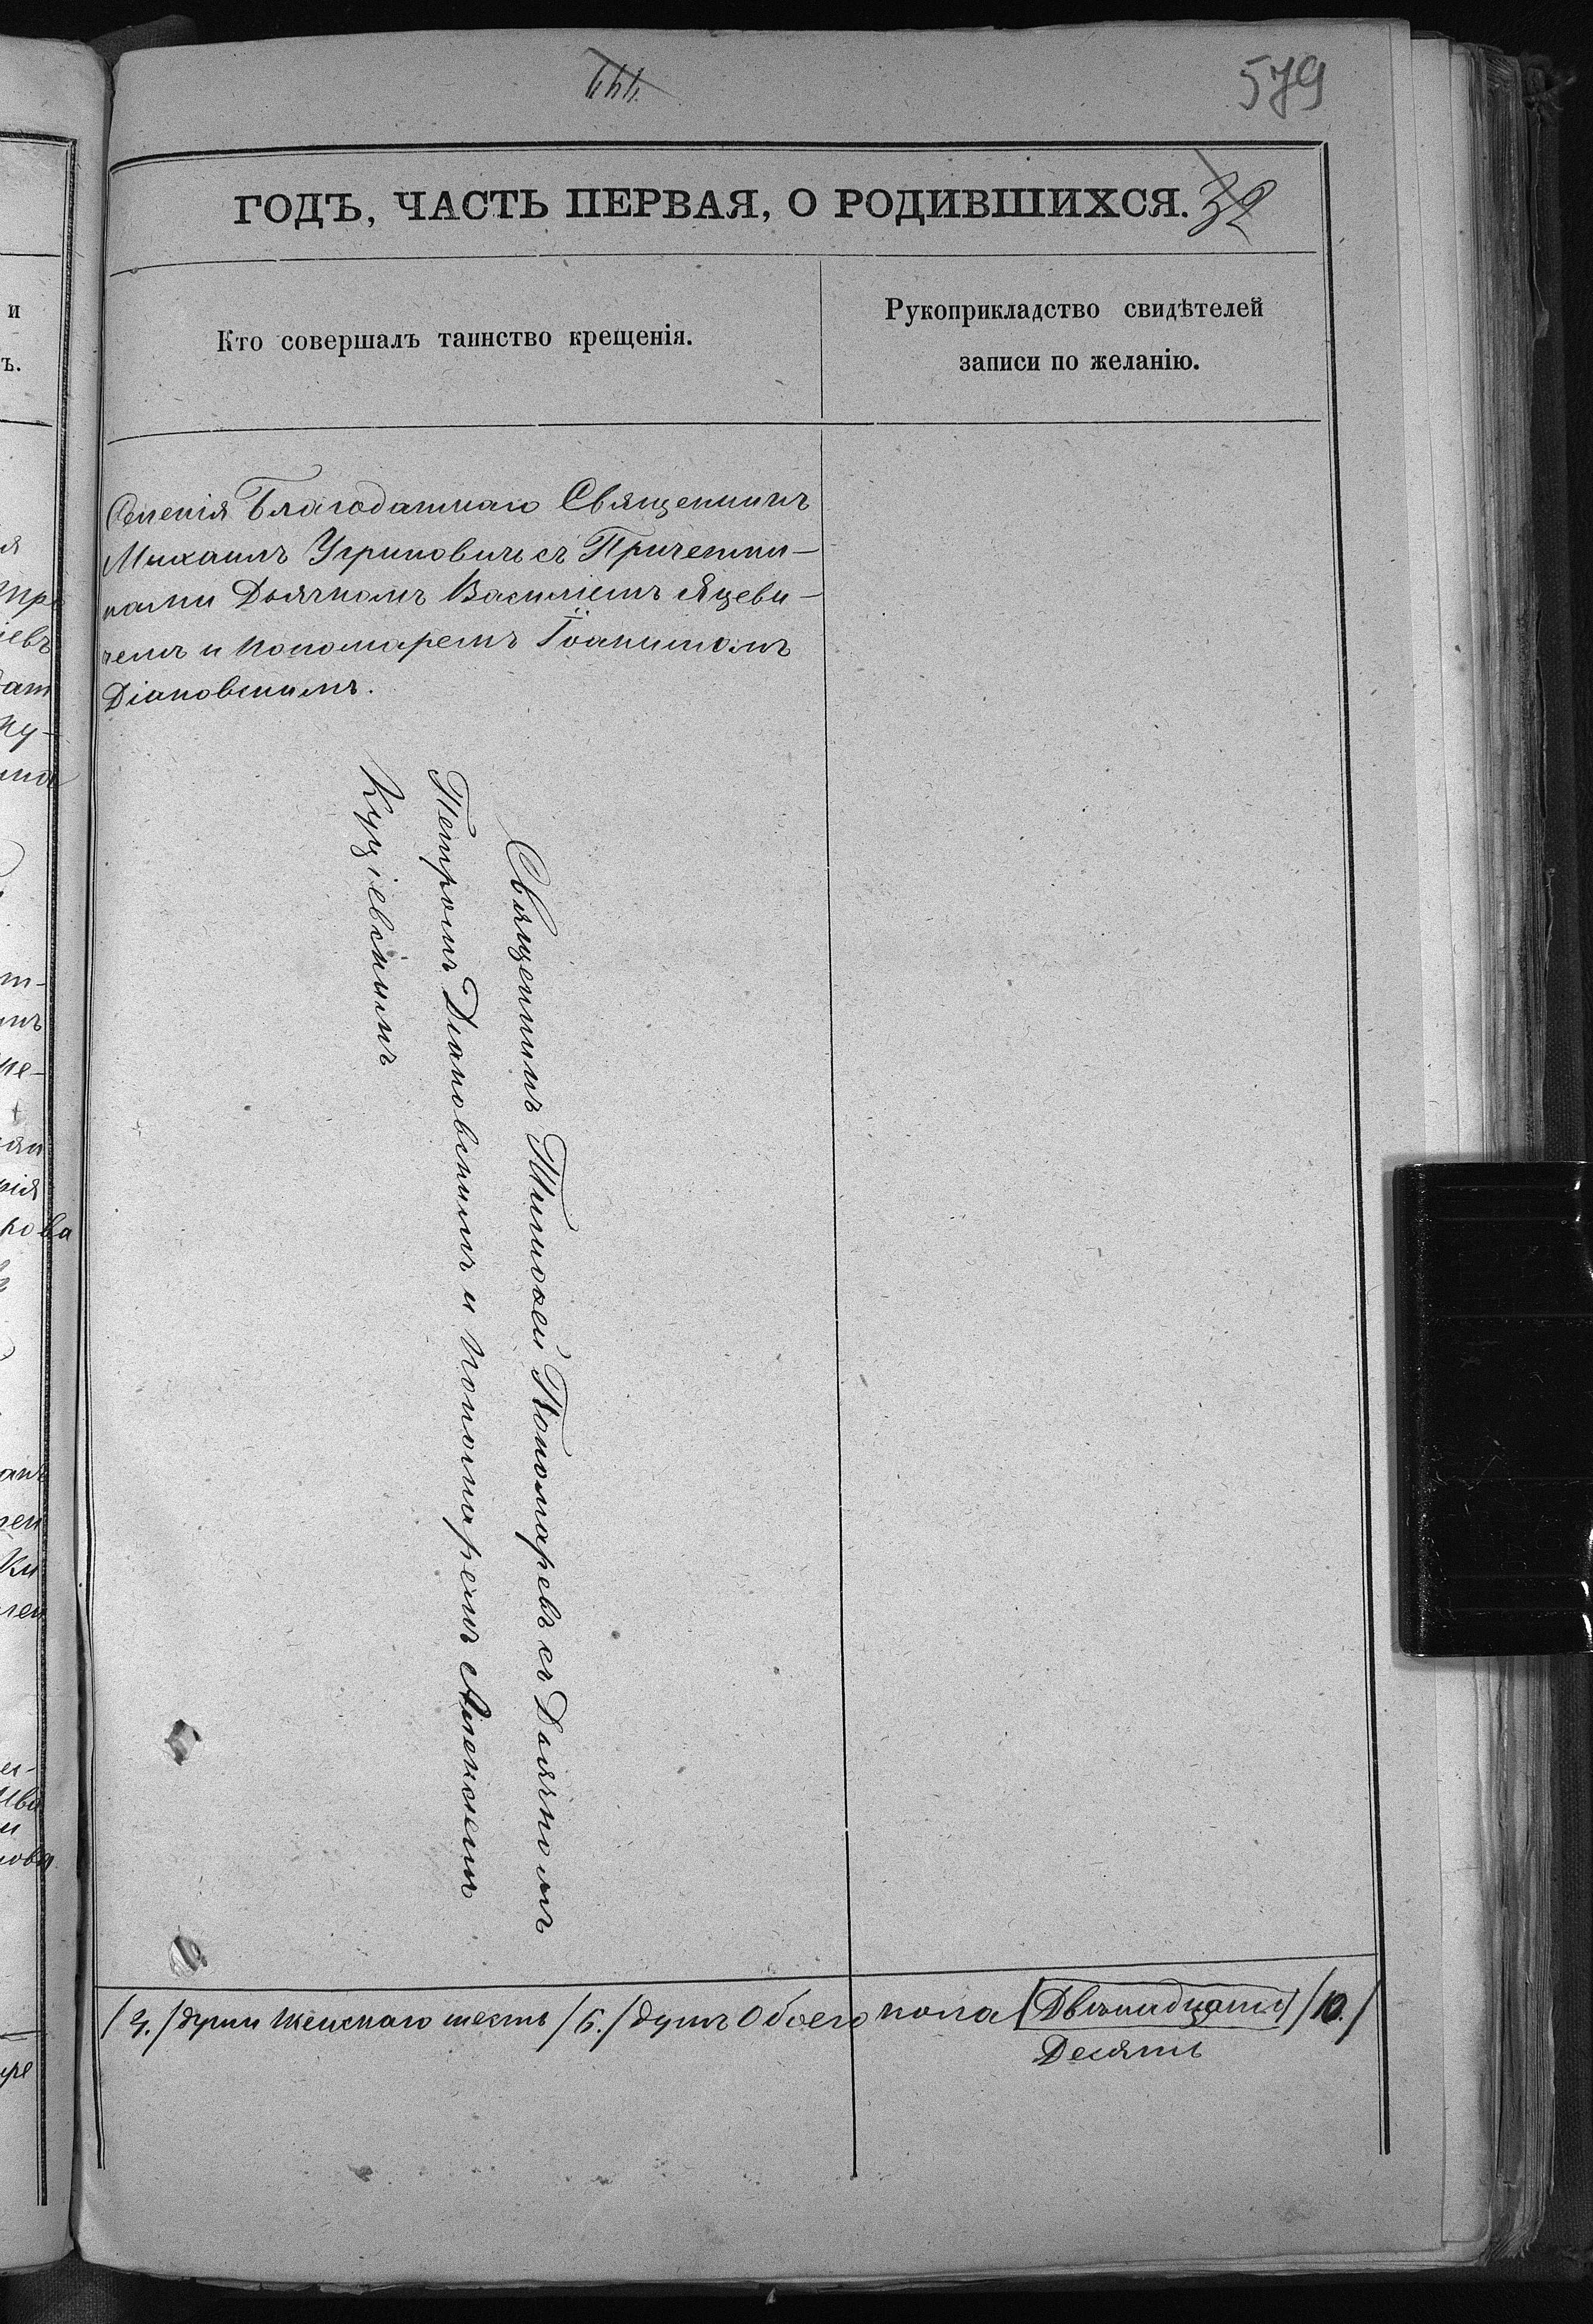 579
ГОДЪ, ЧАСТЬ ПЕРВАЯ, О РОДИВШИХСЯ. 32
Кто совершалъ таинство крещенія.
Рукоприкладство свидѣтелей
записи по желанію.
Благодатнаго Священникъ
Михаилъ Угриновичъ съ Причетни-
ками Дьячкомъ Василіемъ Яцеви-
чемъ и пономаремъ Іоанномъ
Діановскимъ.
Священникъ Тимоѳей Пономаревъ съ Дьячкомъ
Петромъ Діановскимъ и пономаремъ Алексѣемъ
Куціевскимъ
/4./ души женскаго шесть /6./ душъ Обоего пола (Двѣнадцать) /10./
Десять